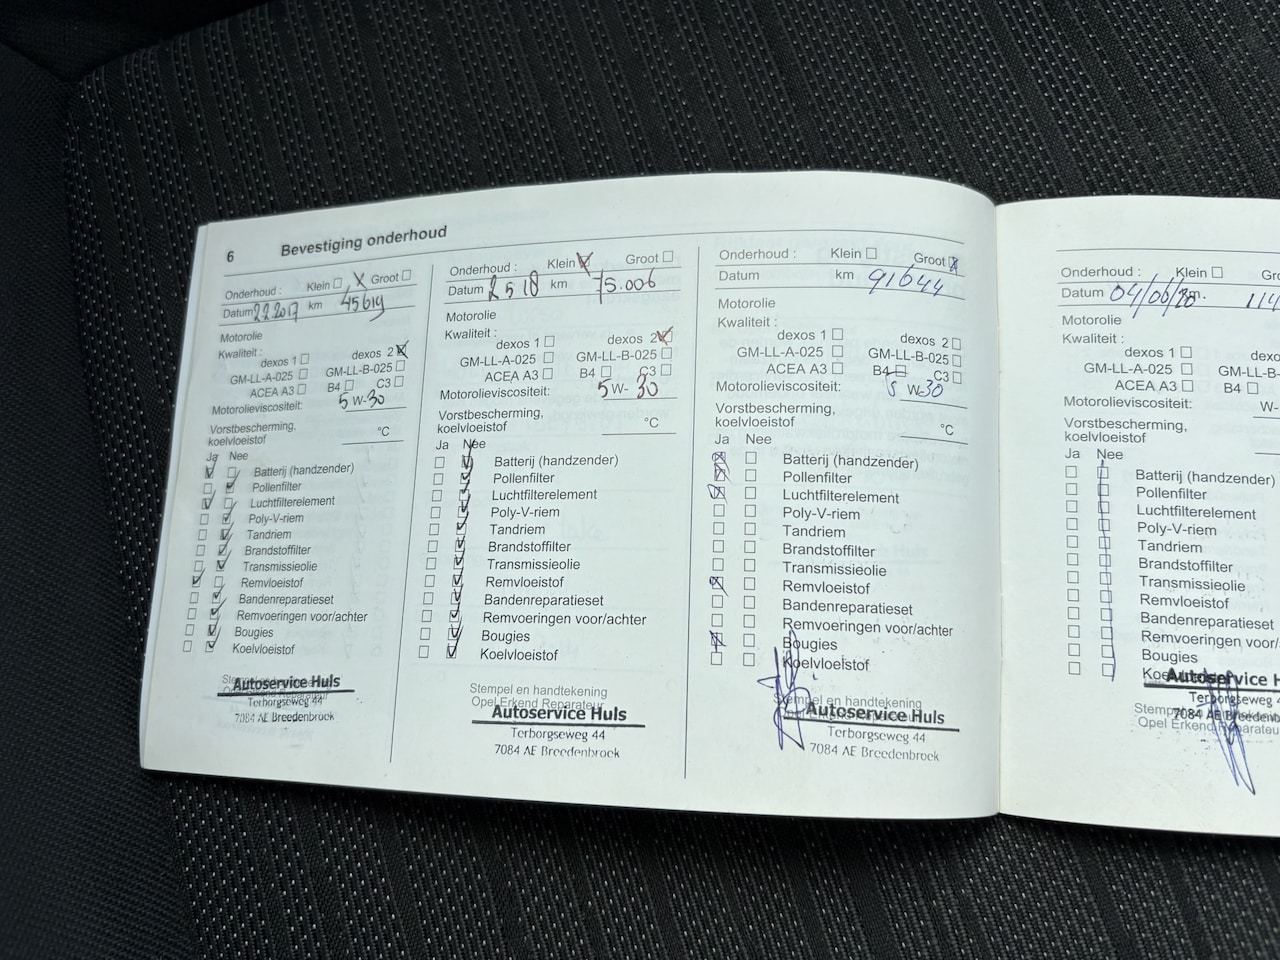 6 Bevestiging onderhoud
Onderhoud : Klein Groot
Datum 22 2017 km 45619
Motorolie
Kwaliteit :
dexos 1 dexos 2
GM-LL-A-025 GM-LL-B-025
ACEA A3 B4 C3
Motorolieviscositeit: 5 W-30
Vorstbescherming,
koelvloeistof °C
Ja Nee
Batterij (handzender)
Pollenfilter
Luchtfilterelement
Poly-V-riem
Tandriem
Brandstoffilter
Transmissieolie
Remvloeistof
Bandenreparatieset
Remvoeringen voor/achter
Bougies
Koelvloeistof
Stempel en handtekening
Opel Erkend Reparateur
Autoservice Huls
Terborgseweg 44
7084 AE Breedenbroek
Onderhoud : Klein Groot
Datum 2 5 18 km 75.006
Motorolie
Kwaliteit :
dexos 1 dexos 2
GM-LL-A-025 GM-LL-B-025
ACEA A3 B4 C3
Motorolieviscositeit: 5 W- 30
Vorstbescherming,
koelvloeistof °C
Ja Nee
Batterij (handzender)
Pollenfilter
Luchtfilterelement
Poly-V-riem
Tandriem
Brandstoffilter
Transmissieolie
Remvloeistof
Bandenreparatieset
Remvoeringen voor/achter
Bougies
Koelvloeistof
Stempel en handtekening
Opel Erkend Reparateur
Autoservice Huls
Terborgseweg 44
7084 AE Breedenbroek
Onderhoud : Klein Groot
Datum km 91644
Motorolie
Kwaliteit :
dexos 1 dexos 2
GM-LL-A-025 GM-LL-B-025
ACEA A3 B4 C3
Motorolieviscositeit: 5 W-30
Vorstbescherming,
koelvloeistof °C
Ja Nee
Batterij (handzender)
Pollenfilter
Luchtfilterelement
Poly-V-riem
Tandriem
Brandstoffilter
Transmissieolie
Remvloeistof
Bandenreparatieset
Remvoeringen voor/achter
Bougies
Koelvloeistof
Stempel en handtekening
Autoservice Huls
Terborgseweg 44
7084 AE Breedenbroek
Onderhoud : Klein Gr
Datum 04/06/20 km. 114
Motorolie
Kwaliteit :
dexos 1 dexo
GM-LL-A-025 GM-LL-B-
ACEA A3 B4
Motorolieviscositeit: W-
Vorstbescherming,
koelvloeistof
Ja Nee
Batterij (handzender)
Pollenfilter
Luchtfilterelement
Poly-V-riem
Tandriem
Brandstoffilter
Transmissieolie
Remvloeistof
Bandenreparatieset
Remvoeringen voor/
Bougies
Koelvloeistof
Autoservice H
Terborgseweg 4
7084 AE Breedenb
Opel Erkend Reparateu